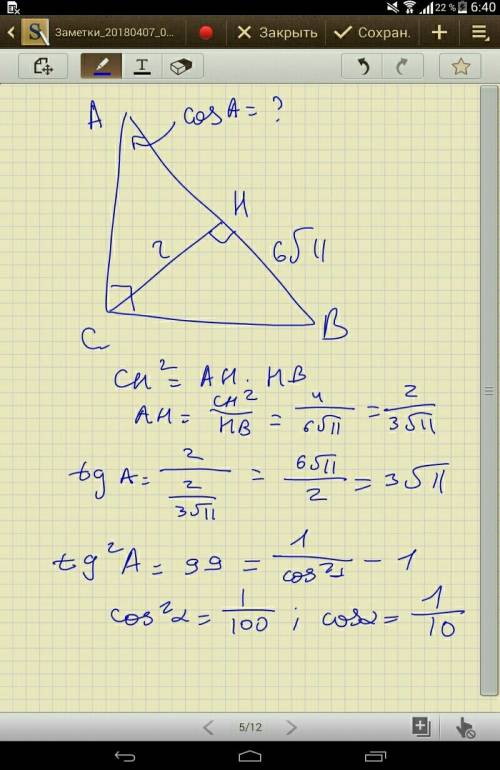 22 % 6:40
Заметки_20180407_0... Закрыть Сохран.
T
A cos A = ?
H
2 6√11
C B
CH² = AH · HB
AH = CH²/HB = 4/6√11 = 2/3√11
tg A = 2/(2/3√11) = 6√11/2 = 3√11
tg²A = 99 = 1/cos²α - 1
cos²α = 1/100 ; cosα = 1/10
5/12